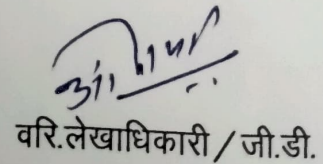 वरि.लेखाधिकारी / जी.डी.